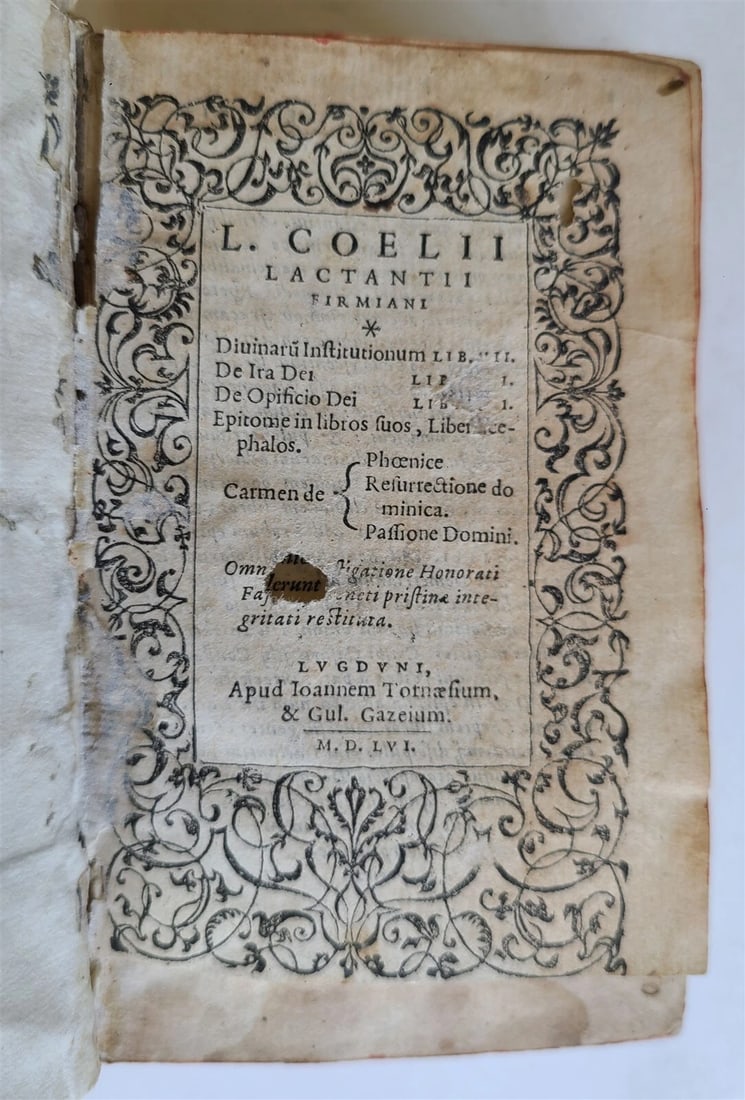 L. COELII
LACTANTII
FIRMIANI
*
Diuinarũ Inſtitutionum LIB. II.
De Ira Dei LIB I.
De Opificio Dei LIB I.
Epitome in libros ſuos, Liber ce-
phalos.
Carmen de
Phœnice
Reſurrectione do
minica.
Paſſione Domini.
Omn igatione Honorati
lerunt
Faſ eneti priſtinæ inte-
gritati reſtituta.
LVGDVNI,
Apud Ioannem Tornæſium,
& Gul. Gazeium.
M. D. LVI.